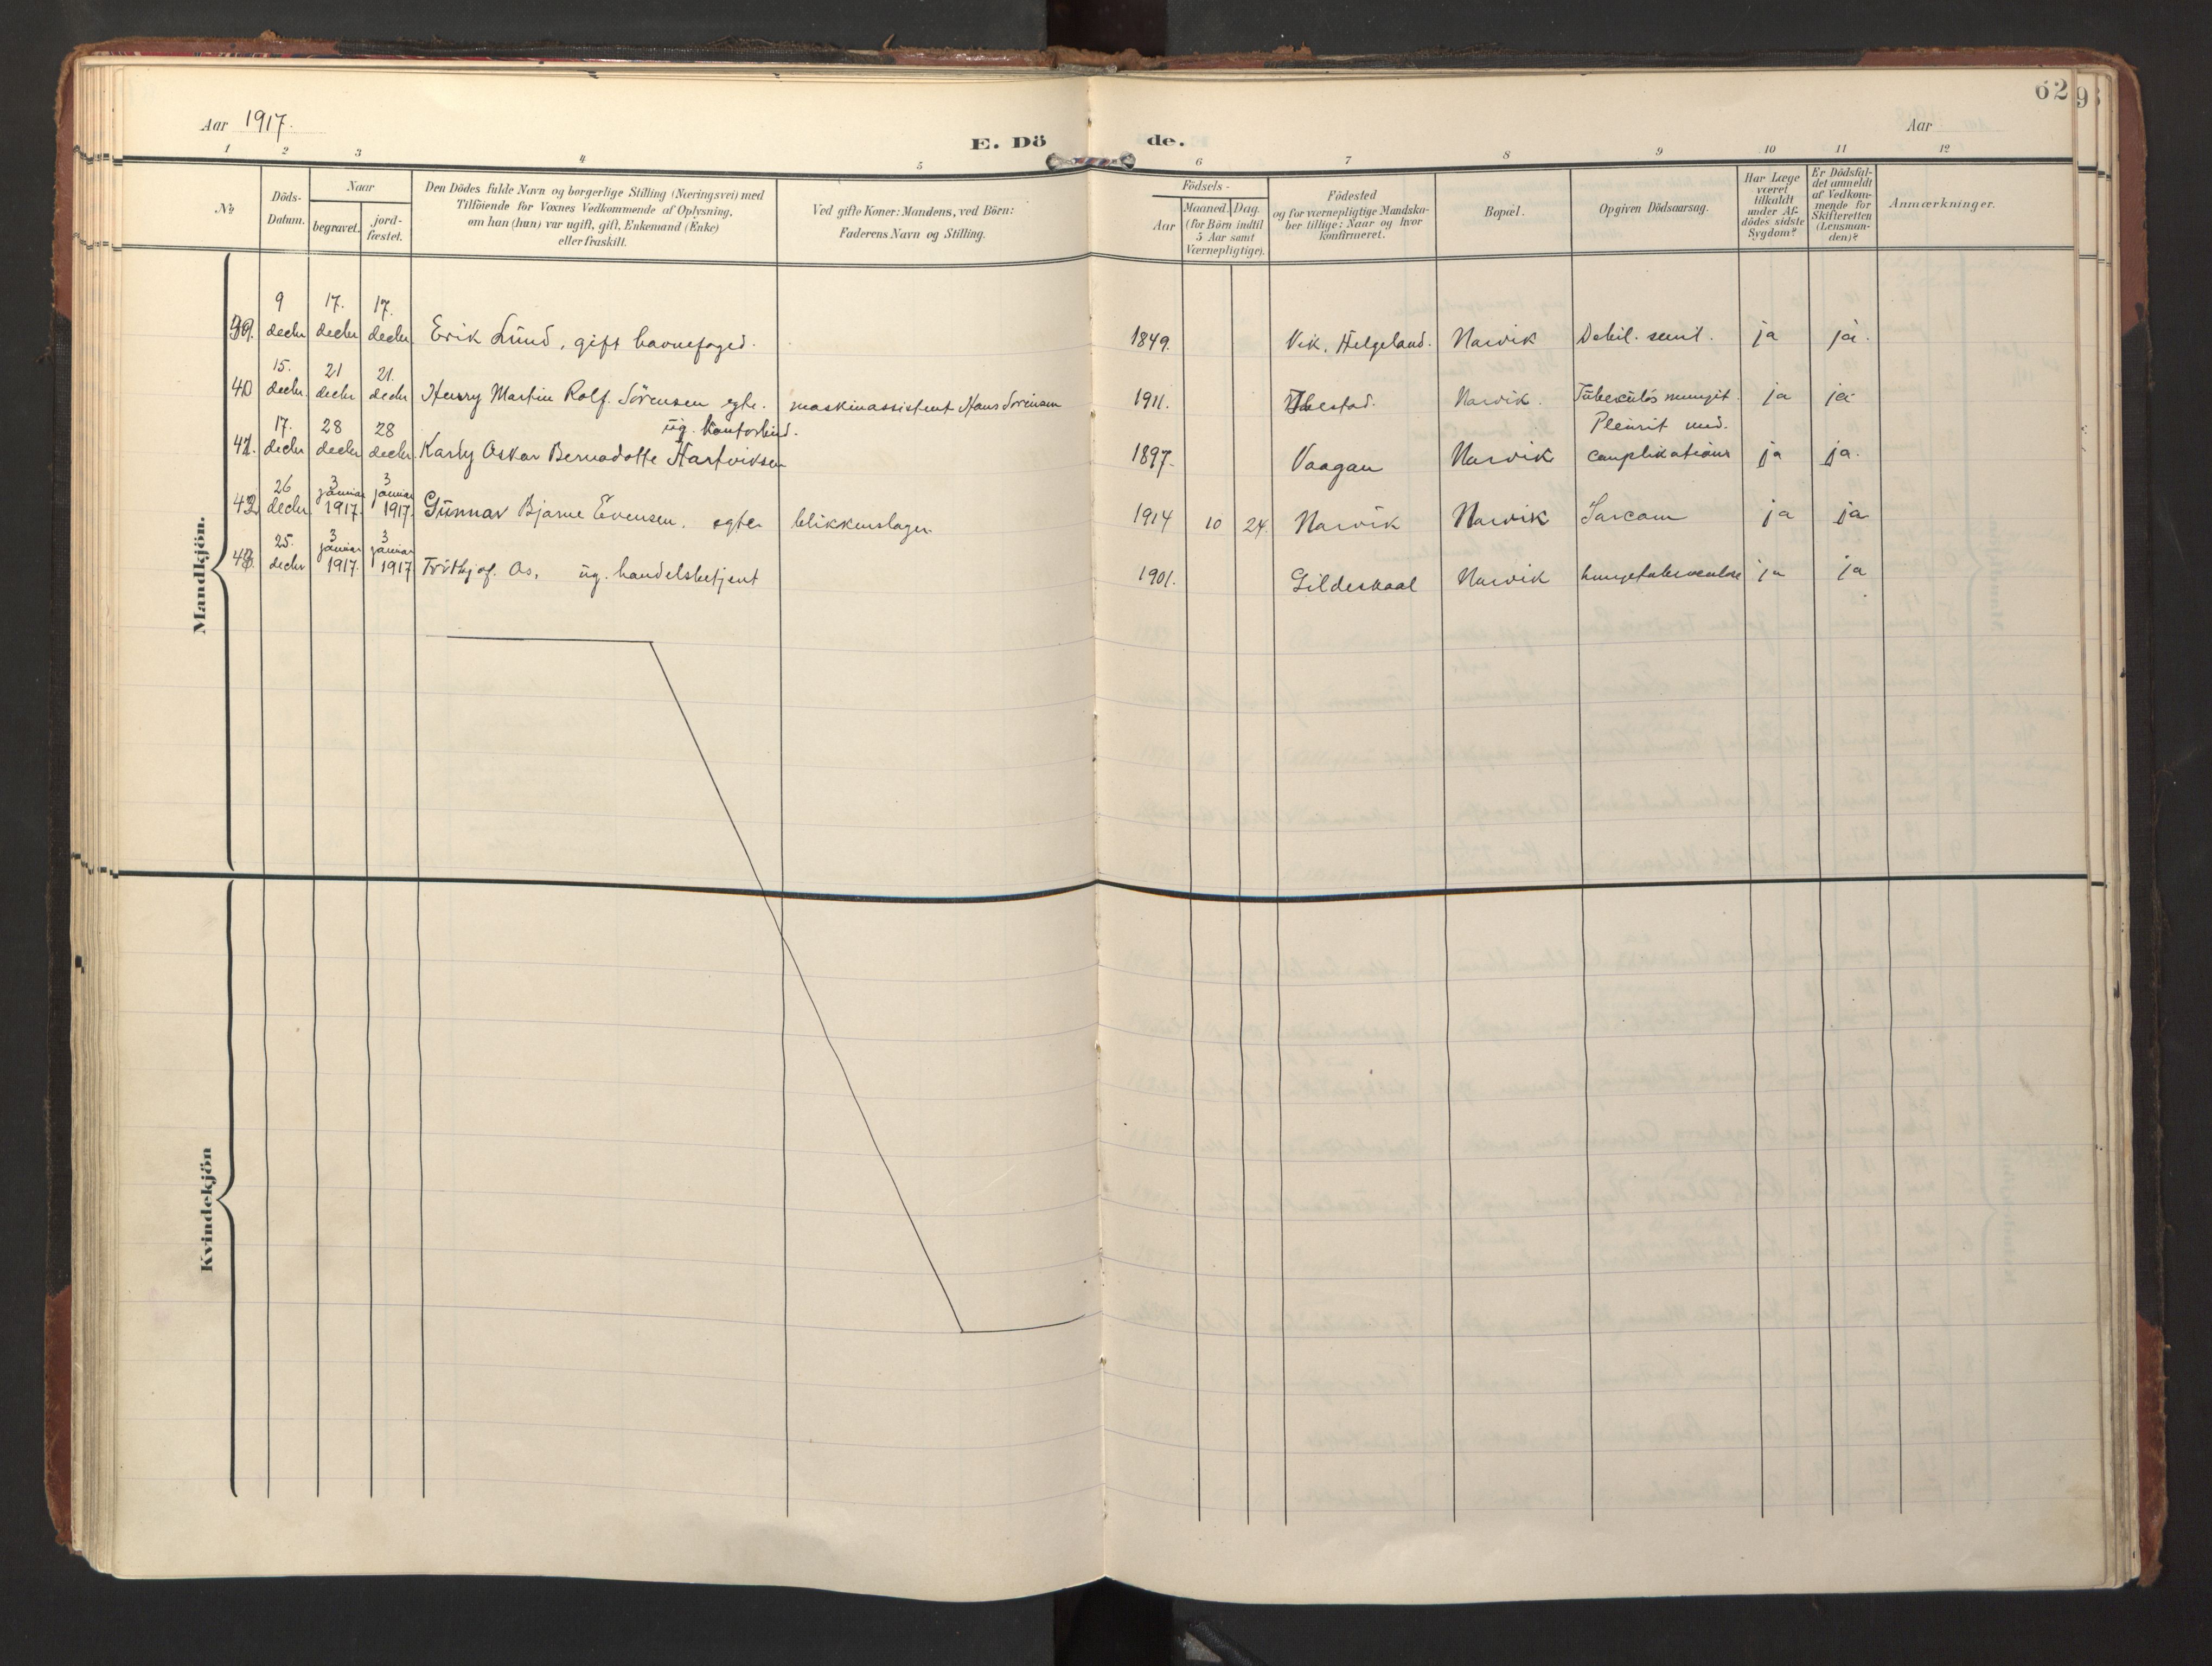 62
Aar 1917.
Aar
E. Dö de.
1 2 3 4 5 6 7 8 9 10 11 12
No
Döds-
Datum.
Naar
begravet.
jord-
fæstet.
Den Dödes fulde Navn og borgerlige Stilling (Næringsvei) med
Tilföiende for Voxnes Vedkommende af Oplysning,
om han (hun) var ugift, gift, Enkemand (Enke)
eller fraskilt.
Ved gifte Koner: Mandens, ved Börn:
Faderens Navn og Stilling.
Födsels-
Aar
Maaned. Dag.
(for Börn indtil
5 Aar samt
Værnepligtige).
Födested
og for værnepligtige Mandska-
ber tillige: Naar og hvor
konfirmeret.
Bopæl.
Opgiven Dödsaarsag.
Har Læge
været
tilkaldt
under Af-
dödes sidste
Sygdom?
Er Dödsfal-
det anmeldt
af Vedkom-
mende for
Skifteretten
(Lensman-
den)?
Anmærkninger.
Mandkjön.
9 17. 17.
39. decbr decbr decbr Erik Lund, gift havnefoged. 1849. Vik, Helgeland. Narvik Debil. senil. ja ja.
15. 21 21.
40 decbr. decbr decbr Henry Martin Rolf Sörensen egte. maskinassistent Hans Sörensen 1911. Ibestad. Narvik. Tuberkulös mningit. ja ja
17. 28 28 ug. kontorbud. Pleurit med.
41. decbr decbr decbr. Karly Oskar Bernadotte Hartviksen 1897. Vaagan Narvik complikations ja ja.
26 3 3
decbr januar januar
42 1917. 1917. Gunnar Bjarne Evensen. egte blikkenslager 1914 10 24. Narvik Narvik Sarcom ja ja
25. 3 3
decbr januar januar
43. 1917. 1917 Frithjof Os, ug. handelsbetjent 1901. Gildeskaal Narvik lungetuberculose ja ja
Kvindekjön